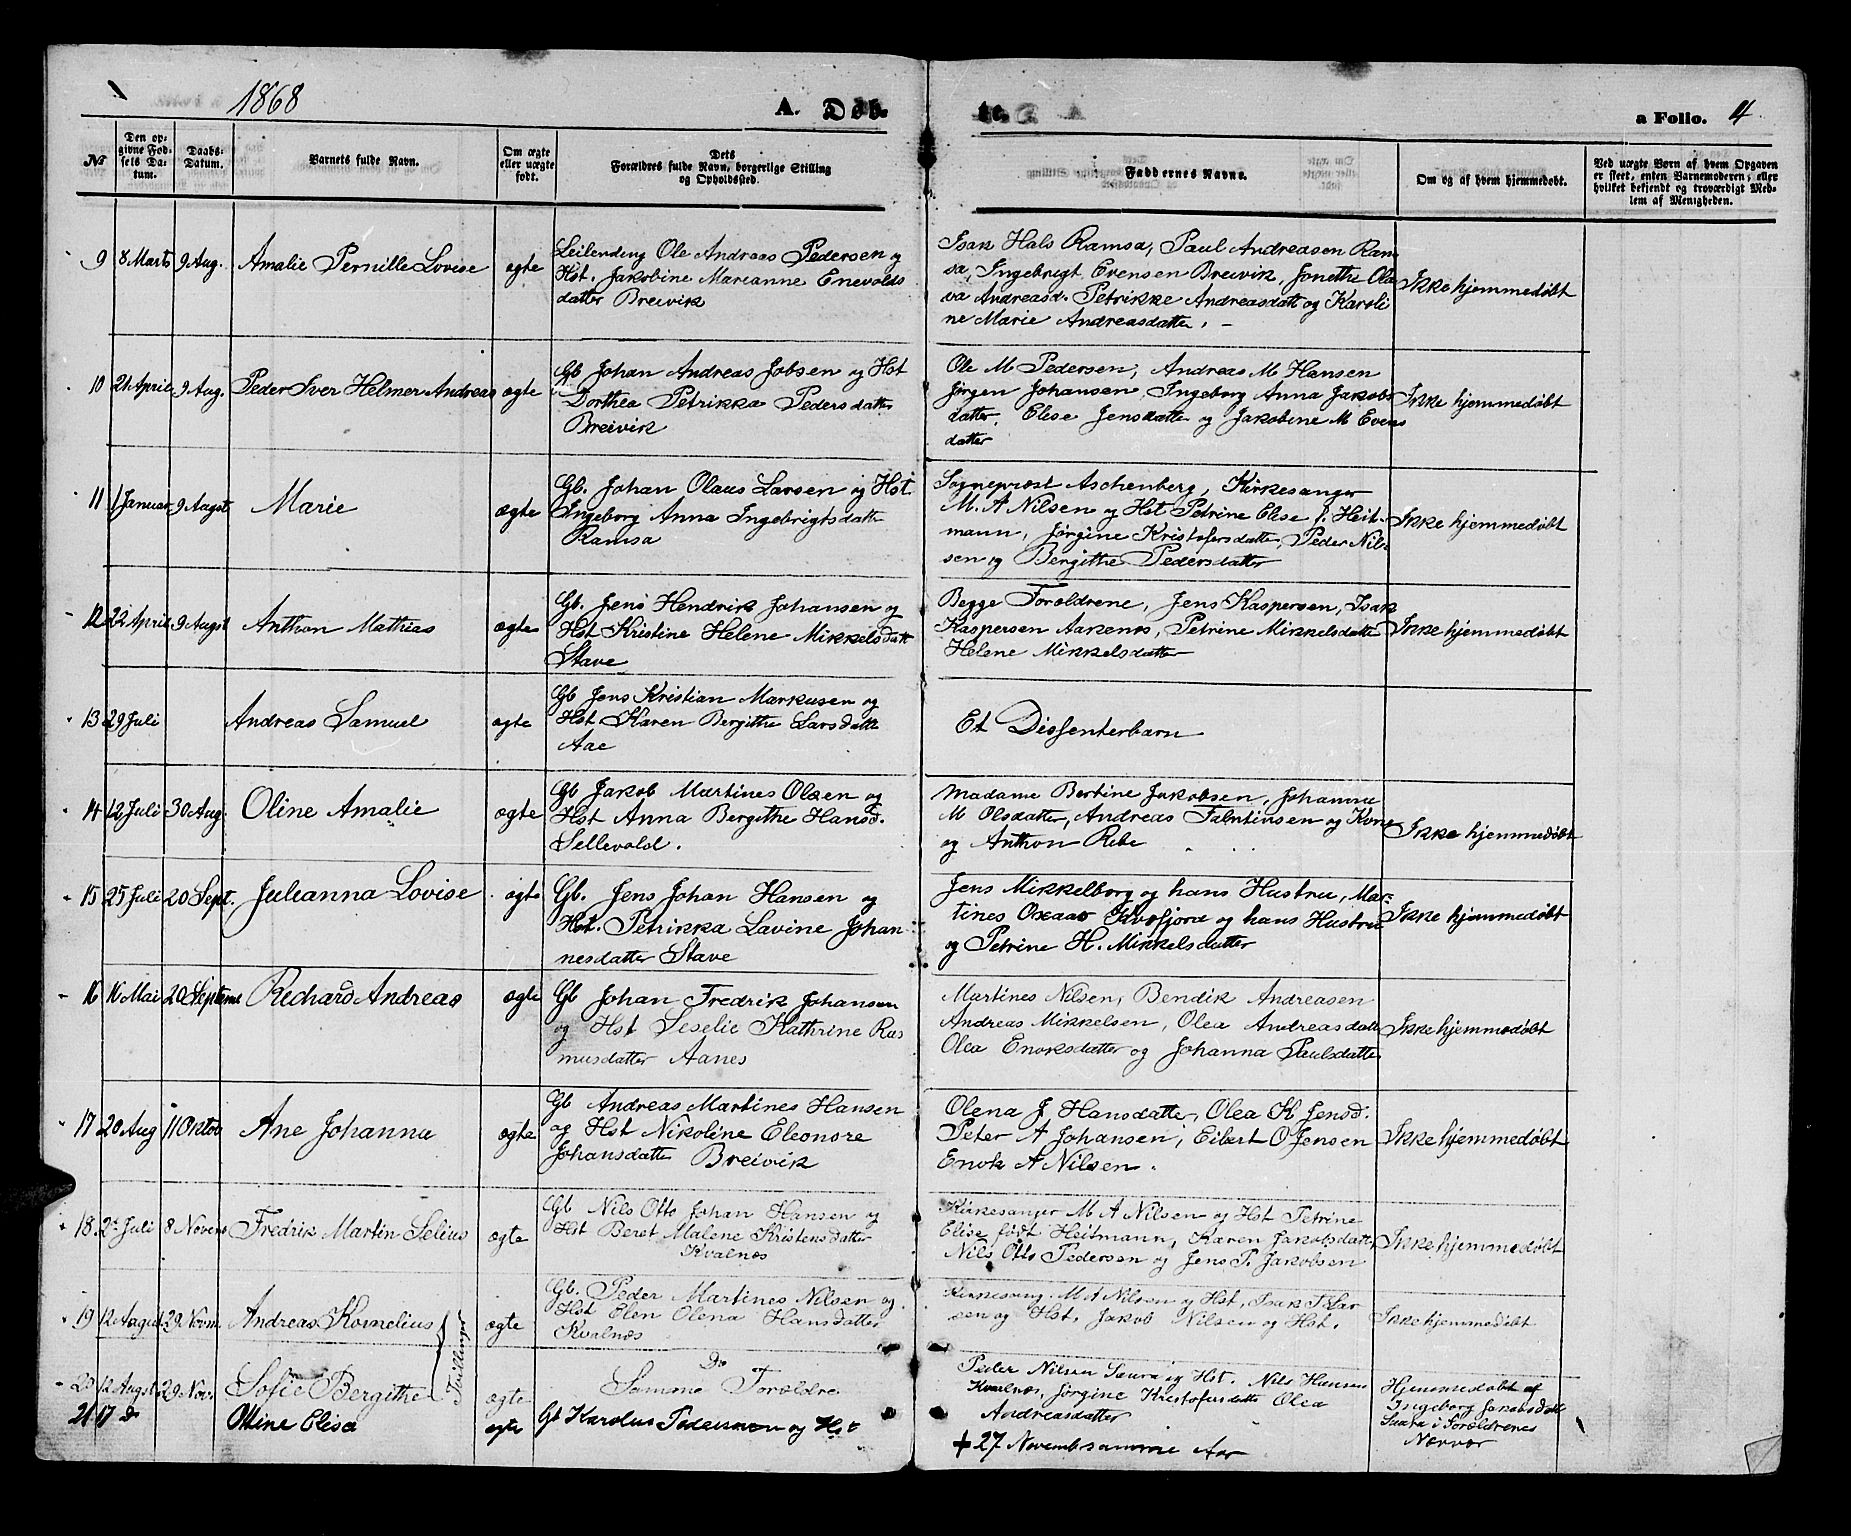 1868
A. Døb-
te.
a Folio. 4
No
Den op-
givne Fød-
sels Da-
tum.
Daabs-
Datum.
Barnets fulde Navn.
Om ægte
eller uægte
født.
Dets
Forældres fulde Navn, borgerlige Stilling
og Opholdssted.
Faddernes Navne.
Om og af hvem hjemmedøbt.
Ved uægte Børn af hvem Opgaven
er skeet, enten Barnemoderen, eller
hvilket bekjendt og troværdigt Med-
lem af Menigheden.
9 8 Marts 9 Aug. Amalie Pernille Lovise ægte
Leilending Ole Andreas Pedersen og
Hst. Jakobine Marianne Enevolds
datter Breivik
Isak Hals Ramsa, Paul Andreasen Ram
sa, Ingebrigt Evensen Breivik, Jonette Ola
va Andreasd. Petrikke Andreasdatt og Karoli
ne Marie Andreasdatter. -
Ikke hjemmedøbt
10 21 April 9 Aug. Peder Iver Helmer Andreas ægte
Gb Johan Andreas Jobsen og Hst
Dorthea Petrikka Pedersdatter
Breivik
Ole M Pedersen, Andreas M Hansen
Jørgen Johansen, Ingeborg Anna Jakobs
datter, Elise Jensdatter og Jakobine M Evens
datter
Ikke hjemmedøbt
11 1 Januar 9 Augst Marie ægte
Gb. Johan Olaus Larsen og Hst.
Ingeborg Anna Ingebrigtsdatter
Ramsa
Sogneprost Aschenberg, Kirkesanger
M. A Nilsen og Hst Petrine Elise f. Heit-
mann, Jørgine Kristofersdatter, Peder Nil-
sen og Bergithe Pedersdatter
Ikke hjemmedøbt
12 22 April 9 Augst Anthon Mathias ægte
Gb. Jens Hendrik Johansen og
Hst Kristine Helene Mikkelsdatt
Stave
Begge Forældrene, Jens Kaspersen, Isak
Kaspersen Aakenes, Petrine Mikkelsdatter
Helene Mikkelsdatter
Ikke hjemmedøbt
13 29 Juli Andreas Samuel ægte
Gb Jens Kristian Markusen og
Hst Karen Bergithe Larsdatter
Aae
Et Dissenterbarn
14 12 Juli 30 Aug. Oline Amalie ægte
Gb Jakob Martines Olsen og
Hst Anna Bergithe Hansd.
Sellevold.
Madame Bertine Jakobsen, Johanna
M Olsdatter, Andreas Falntinsen og Kone
og Anthon Rebe
Ikke hjemmedøbt
15 25 Juli 20 Sept. Julianna Lovise ægte
Gb. Jens Johan Hansen og
Hst. Petrikka Lavine Johan
nesdatter Stave
Jens Mikkelborg og hans Hustru, Mar-
tines Oxaas Kvefjord og hans Hustru
og Petrine H. Mikkelsdatter
Ikke hjemmedøbt
16 16 Mai 20 Septemb Richard Andreas ægte
Gb Johan Fredrik Johansen
og Hst Seselie Kathrine Ras
musdatter Aanes
Martines Nilsen, Bendik Andreasen
Andreas Mikkelsen, Olea Andreasdatt
Olea Enoksdatter og Johanna Paulsdatter
Ikke hjemmedøbt
17 20 Aug 11 Oktob Ane Johanna ægte
Gb Andreas Martines Hansen
og Hst Nikoline Eleonore
Johansdatter Breivik
Olena J Hansdatter, Olea K Jensd.
Peter A Johansen, Eibert O Jensen
Enok A Nilsen.
Ikke hjemmedøbt
18 Juli 8 Novem Fredrik Martin Selius ægte
Gb Nils Otto Johan Hansen og
Hst Beret Malene Kristensdatter
Kvalnes
Kirkesanger M A Nilsen og Hst Petrine
Elise født Heitmann, Karen Jakobsdatter,
Nils Otto Pedersen og Jens P. Jakobsen
Ikke hjemmedøbt
19 12 August 29 Novm. Andreas Kornelius ægte
Tvillinger
Gb. Peder Martines Nilsen og
Hst Elen Olena Hansdatter
Kvalnes
Kirkesang. M A Nilsen og Hst, Isak T. Lar
sen og Hst, Jakob Nilsen og Hst.
Ikke hjemmedøbt
20 12 Augst 29 Nov. Sofie Bergithe ægte
Do
Samme Forældre
Peder Nilsen Saura og Hst. Nils Hansen
Kvalnes, Jørgine Kristofersdatter Olea
Andreasdatter
Hjemmedøbt af
Ingeborg Jakobsdatt
Saura i Forældrenes
Nærvær
21 17 d Oline Elisa ægte
Gb Karolus Pedersen og Hst
+ 27 November samme Aar